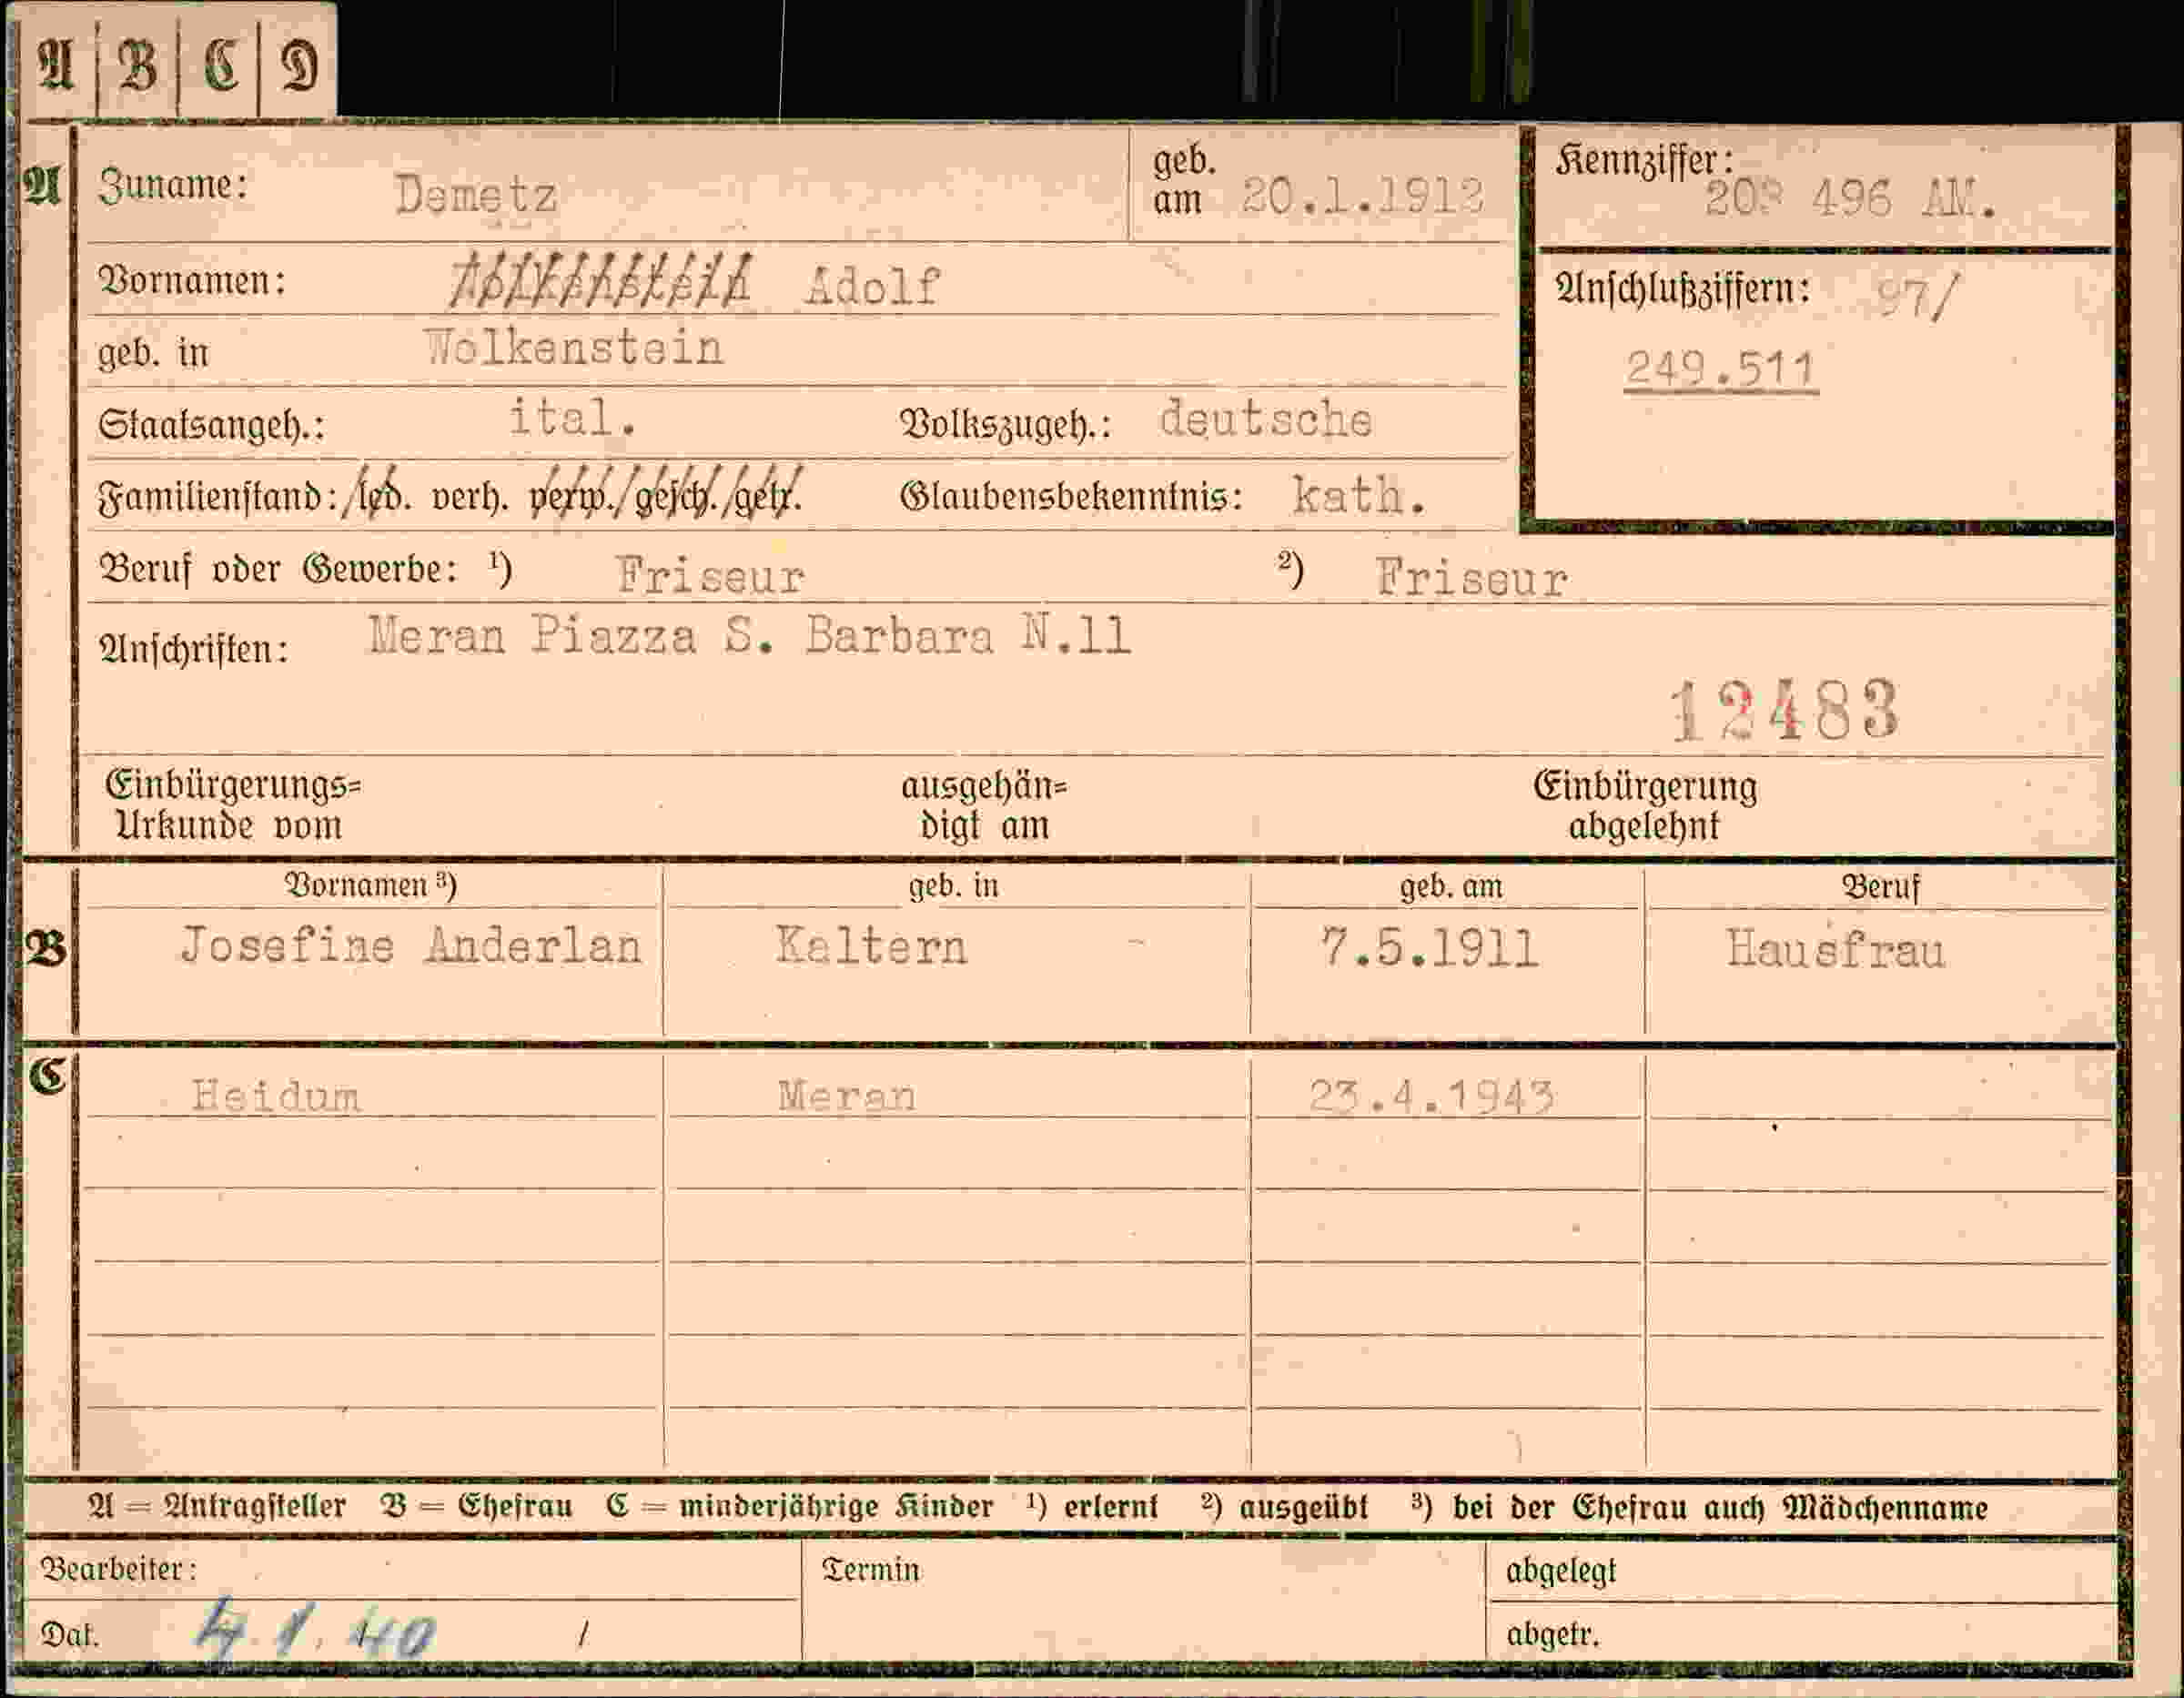 A | B | C | D
A Zuname: Demetz geb. am 20.1.1912 Kennziffer: 496 AM.
Vornamen: Wolkenstein Adolf Anschlußziffern: 97/
geb. in Wolkenstein 249.511
Staatsangeh.: ital. Volkszugeh.: deutsche
Familienstand: led. verh. verw. gesch. getr. Glaubensbekenntnis: kath.
Beruf oder Gewerbe: ¹) Friseur ²) Friseur
Anschriften: Meran Piazza S. Barbara N.11
12483
Einbürgerungs= ausgehän= Einbürgerung
Urkunde vom digt am abgelehnt
Vornamen ³) geb. in geb. am Beruf
B Josefine Anderlan Kaltern 7.5.1911 Hausfrau
C Heidum Meran 23.4.1943
A = Antragsteller B = Ehefrau C = minderjährige Kinder ¹) erlernt ²) ausgeübt ³) bei der Ehefrau auch Mädchenname
Bearbeiter: Termin abgelegt
Dat. 4.1.40 / abgetr.